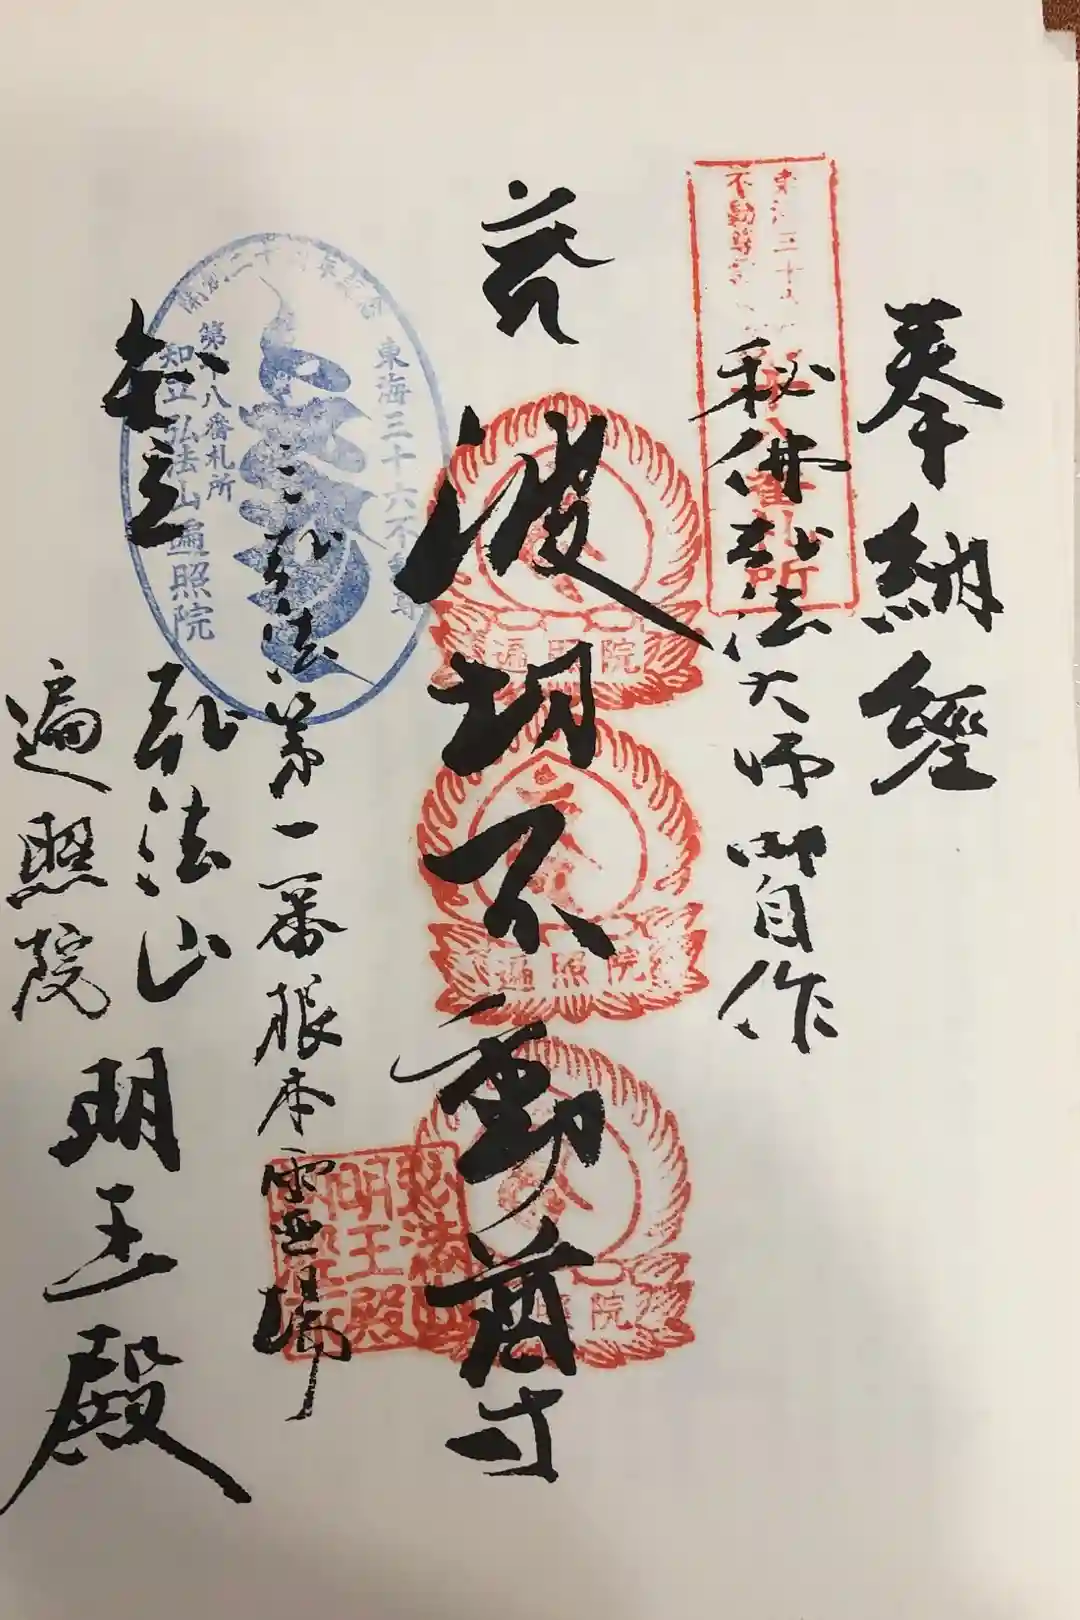 奉納經
秘佛弘法大師御自作
波切不動尊
三弘法第一番根本霊場
知立
弘法山
遍照院
明王殿
東海三十六
不動尊
番札所
遍照院
遍照院
照院
東海三十六不動尊
第十八番札所
知立弘法山遍照院
明王殿